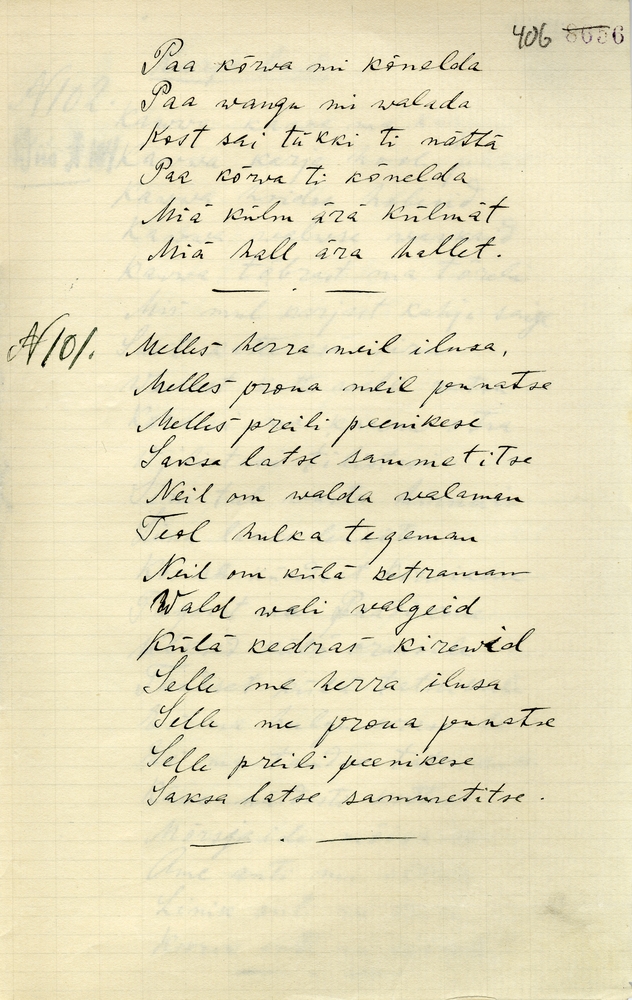 406 8656
Paa kõrwa mi kõnelda
Paa wangu mi waluda
Kost sai tükki ti nättä
Paa kõrwa ti kõnelda
Miä külm ärä külmät
Miä hall ära hallet.
N 101.
Melles herra meil ilusa,
Melles proua meil punatse
Melles preili peenikese
Saksa latse sammetitse
Neil om walda walaman
Teol hulka tegeman
Neil om külä ketraman
Wald wali walgeid
Külä kedras kirewid
Selle me herra ilusa
Selle me proua punatse
Selle preili peenikese
Saksa latse sammetitse.